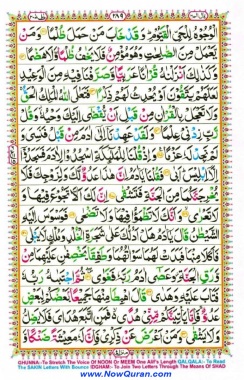 ٢٨٩
الْوُجُوْهُ لِلْحَيِّ الْقَيُّوْمِ وَقَدْ خَابَ مَنْ حَمَلَ ظُلْمًا وَمَنْ
يَّعْمَلْ مِنَ الصّٰلِحٰتِ وَهُوَ مُؤْمِنٌ فَلَا يَخٰفُ ظُلْمًا وَّلَا هَضْمًا
وَكَذٰلِكَ اَنْزَلْنٰهُ قُرْاٰنًا عَرَبِيًّا وَّصَرَّفْنَا فِيْهِ مِنَ الْوَعِيْدِ
لَعَلَّهُمْ يَتَّقُوْنَ اَوْ يُحْدِثُ لَهُمْ ذِكْرًا فَتَعٰلَى اللّٰهُ الْمَلِكُ الْحَقُّ
وَلَا تَعْجَلْ بِالْقُرْاٰنِ مِنْ قَبْلِ اَنْ يُّقْضٰٓى اِلَيْكَ وَحْيُهٗ وَقُلْ
رَّبِّ زِدْنِيْ عِلْمًا وَلَقَدْ عَهِدْنَآ اِلٰٓى اٰدَمَ مِنْ قَبْلُ فَنَسِيَ وَ
لَمْ نَجِدْ لَهٗ عَزْمًا وَاِذْ قُلْنَا لِلْمَلٰٓئِكَةِ اسْجُدُوْا لِاٰدَمَ فَسَجَدُوْٓا
اِلَّآ اِبْلِيْسَ اَبٰى فَقُلْنَا يٰٓاٰدَمُ اِنَّ هٰذَا عَدُوٌّ لَّكَ وَلِزَوْجِكَ فَلَا
يُخْرِجَنَّكُمَا مِنَ الْجَنَّةِ فَتَشْقٰى اِنَّ لَكَ اَلَّا تَجُوْعَ فِيْهَا وَ
لَا تَعْرٰى وَاَنَّكَ لَا تَظْمَؤُا فِيْهَا وَلَا تَضْحٰى فَوَسْوَسَ اِلَيْهِ
الشَّيْطٰنُ قَالَ يٰٓاٰدَمُ هَلْ اَدُلُّكَ عَلٰى شَجَرَةِ الْخُلْدِ وَمُلْكٍ لَّا يَبْلٰى
فَاَكَلَا مِنْهَا فَبَدَتْ لَهُمَا سَوْاٰتُهُمَا وَطَفِقَا يَخْصِفٰنِ عَلَيْهِمَا مِنْ
وَّرَقِ الْجَنَّةِ وَعَصٰٓى اٰدَمُ رَبَّهٗ فَغَوٰى ثُمَّ اجْتَبٰهُ رَبُّهٗ فَتَابَ
عَلَيْهِ وَهَدٰى قَالَ اهْبِطَا مِنْهَا جَمِيْعًۢا بَعْضُكُمْ لِبَعْضٍ
عَدُوٌّ فَاِمَّا يَاْتِيَنَّكُمْ مِّنِّيْ هُدًى فَمَنِ اتَّبَعَ هُدَايَ فَلَا يَضِلُّ
وَلَا يَشْقٰى وَمَنْ اَعْرَضَ عَنْ ذِكْرِيْ فَاِنَّ لَهٗ مَعِيْشَةً ضَنْكًا
GHUNNA:- To Stretch The Voice Of NOON Or MEEM One Alif's Length QALQALA:- To Read
The SAKIN Letters With Bounce IDGHAM:- To Join Two Letters Through The Means Of SHAD
www.NowQuran.com